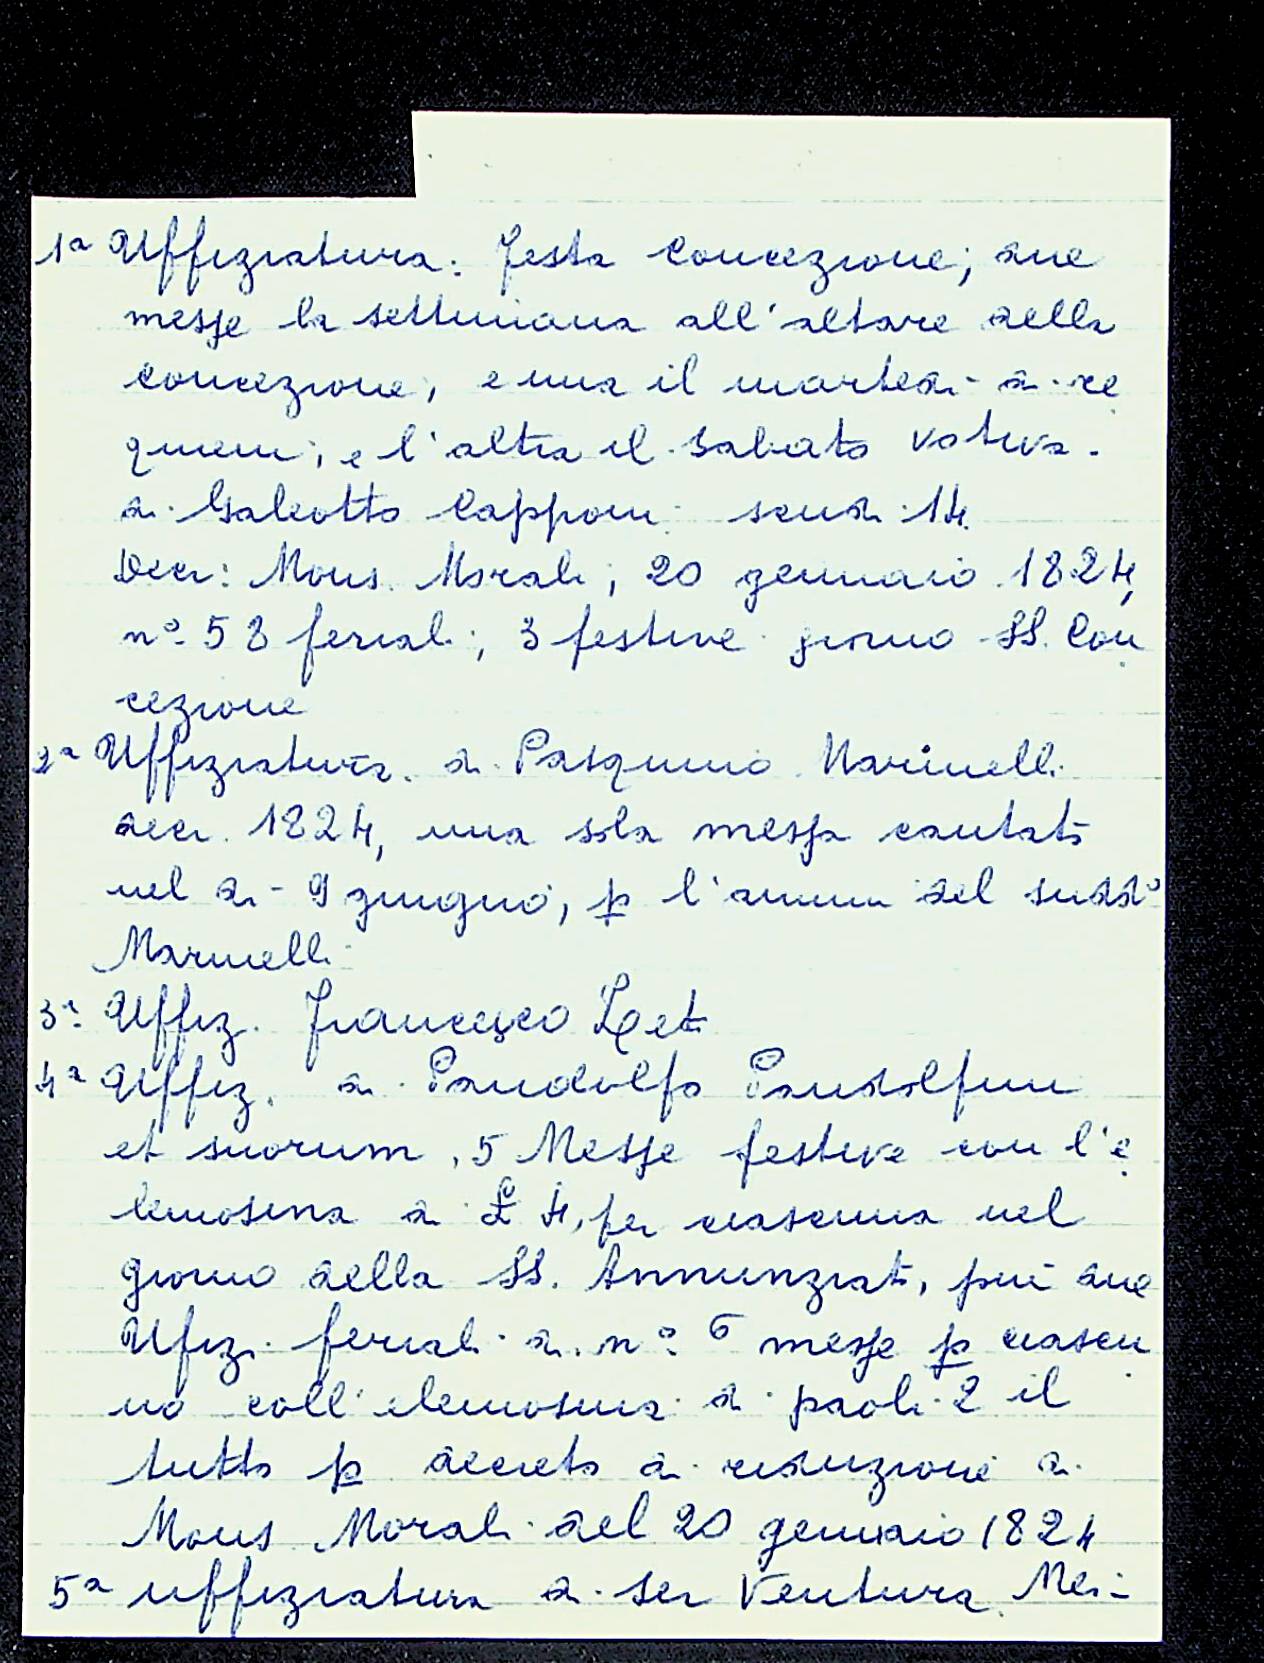 1ª Uffiziatura: festa Concezione; due
messe la settimana all'altare della
concezione; e una il martedì di re
quiem; e l'altra il sabato votiva.
di Galeotto Capponi scudi 14
Decr: Mons. Morali; 20 gennaio 1824,
nº 58 feriali; 3 festive giorno SS. Con
cezione
2ª Uffiziatura. di Pasquino Marinelli
decr. 1824, una sola messa cantata
nel dì 9 giugno, p l'anima del suddº
Marinelli
3ª Uffiz. Francesco
4ª Uffiz. di Pandolfo Pandolfini
et suorum, 5 Messe festive con l'e
lemosina di £ 4, per ciascuna nel
giorno della SS. Annunziata, più due
Ufizi feriali di nº 6 messe p ciascu
no coll'elemosina di paoli 2 il
tutto p decreto di riduzione di
Mons. Morali del 20 gennaio 1824
5ª uffiziatura di ser Ventura